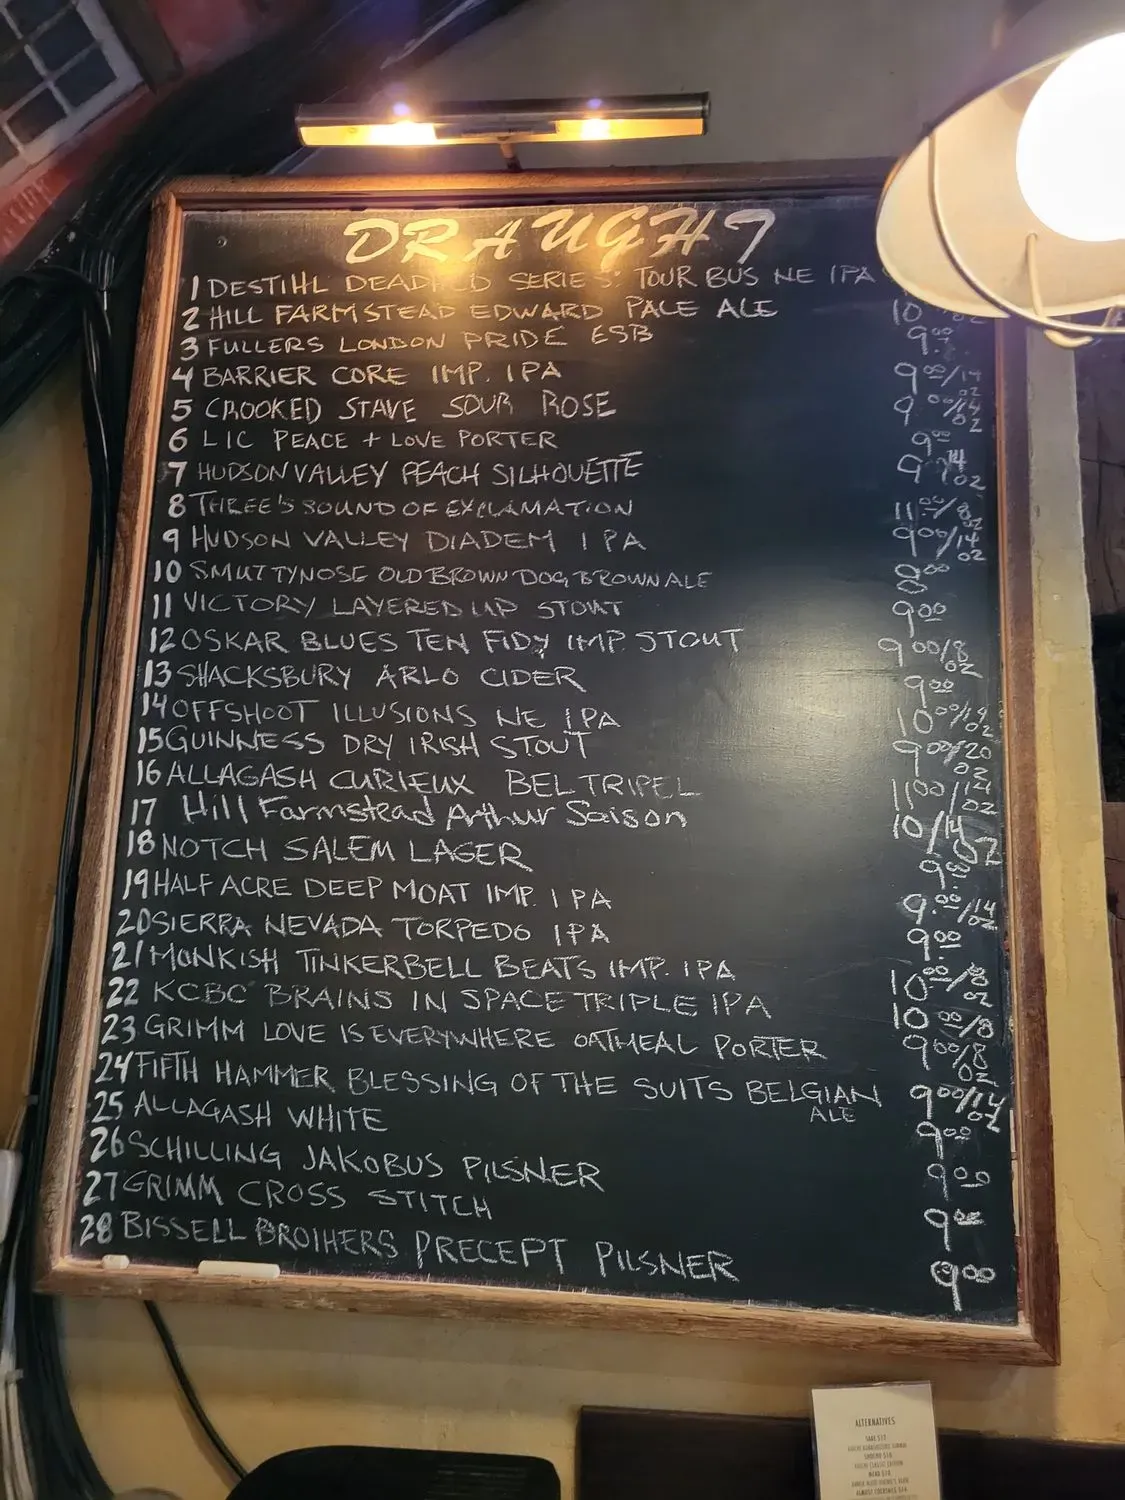 DRAUGHT
1 DESTIHL DEADHEAD SERIES: TOUR BUS NE IPA
2 HILL FARMSTEAD EDWARD PALE ALE 10
3 FULLERS LONDON PRIDE ESB 9.00
4 BARRIER CORE IMP. IPA 9 00/14 OZ
5 CROOKED STAVE SOUR ROSE 9 00/14 OZ
6 LIC PEACE + LOVE PORTER 9 00
7 HUDSON VALLEY PEACH SILHOUETTE 9 14 OZ
8 THREE'S SOUND OF EXCLAMATION 11 00/8 OZ
9 HUDSON VALLEY DIADEM IPA 9 00/14 OZ
10 SMUTTYNOSE OLD BROWN DOG BROWN ALE 8 00
11 VICTORY LAYERED UP STOUT 9 00
12 OSKAR BLUES TEN FIDY IMP. STOUT 9 00/8 OZ
13 SHACKSBURY ARLO CIDER 9 00
14 OFFSHOOT ILLUSIONS NE IPA 10 00/14 OZ
15 GUINNESS DRY IRISH STOUT 9 00/20 OZ
16 ALLAGASH CURIEUX BEL TRIPEL 11 00/14 OZ
17 Hill Farmstead Arthur Saison 10/14 OZ
18 NOTCH SALEM LAGER 9.00
19 HALF ACRE DEEP MOAT IMP. IPA 9.00/14 OZ
20 SIERRA NEVADA TORPEDO IPA 9 00
21 MONKISH TINKERBELL BEATS IMP. IPA 10 00/8 OZ
22 KCBC BRAINS IN SPACE TRIPLE IPA 10 00/8
23 GRIMM LOVE IS EVERYWHERE OATMEAL PORTER 9 00/8 OZ
24 FIFTH HAMMER BLESSING OF THE SUITS BELGIAN 9 00/14 OZ
ALE
25 ALLAGASH WHITE 9 00
26 SCHILLING JAKOBUS PILSNER 9 00
27 GRIMM CROSS STITCH 9 00
28 BISSELL BROTHERS PRECEPT PILSNER 9 00
ALTERNATIVES